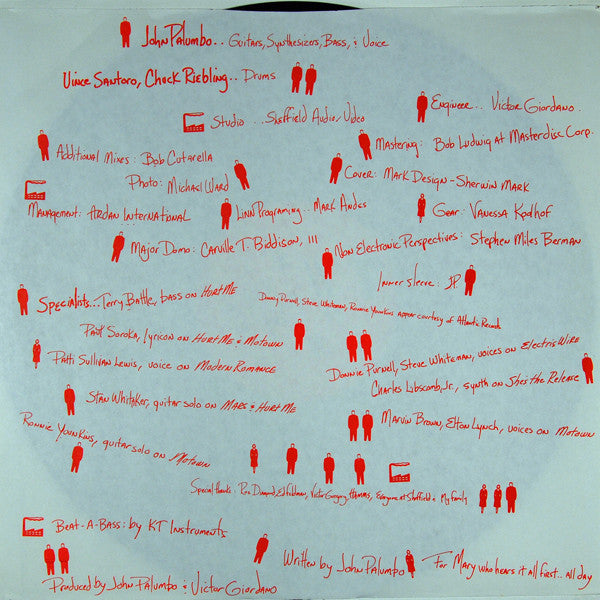 John Palumbo.. Guitars, Synthesizers, Bass, & Voice
Vince Santoro, Chuck Riebling.. Drums
Engineer.. Victor Giordano.
Studio ...Sheffield Audio/Video
Mastering: Bob Ludwig at Masterdisc Corp.
Additional Mixes: Bob Cutarella
Photo: Michael Ward
Cover: Mark Design-Sherwin Mark
Management: Ardan International
Linn Programing.. Mark Andes
Gear: Vanessa Kodhof
Major Domo: Carville T. Biddison, III
Non Electronic Perspectives: Stephen Miles Berman
Inner sleeve: JP
Specialists...Terry Battle, bass on Hurt Me
Donny Purnell, Steve Whiteman, Ronnie Younkins appear courtesy of Atlantic Records
Paul Soroka, lyricon on Hurt Me & Motown
Donnie Purnell, Steve Whiteman, voices on Electric Wire
Patti Sullivan Lewis, voice on Modern Romance
Charles Libscomb, Jr., synth on Shes the Release
Stan Whitaker, guitar solo on Mars & Hurt Me
Marvin Brown, Elton Lynch, voices on Motown
Ronnie Younkins, guitar solo on Motown
Special thanks: Diamond, Ed Feldman, Victor Gregory, Everyone at Sheffield & My family
Beat-A-Bass: by KT Instruments
Written by John Palumbo
For Mary who hears it all first.. all day
Produced by John Palumbo & Victor Giordano